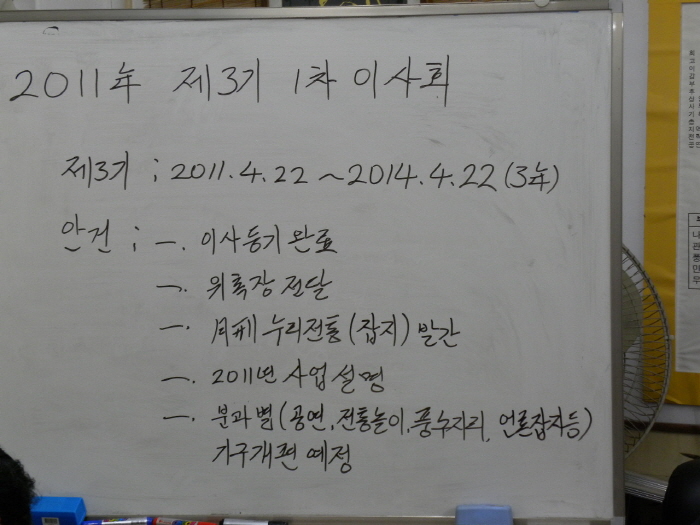 2011年 제3기 1차 이사회
제3기 ; 2011.4.22 ~ 2014.4.22 (3年)
안건 ; 一. 이사등기 완료
一. 위촉장 전달
一. 月刊 누리전통 (잡지) 발간
一. 2011년 사업 설명
一. 분과별 (공연, 전통놀이, 풍수자리, 언론잡지등)
기구개편 예정